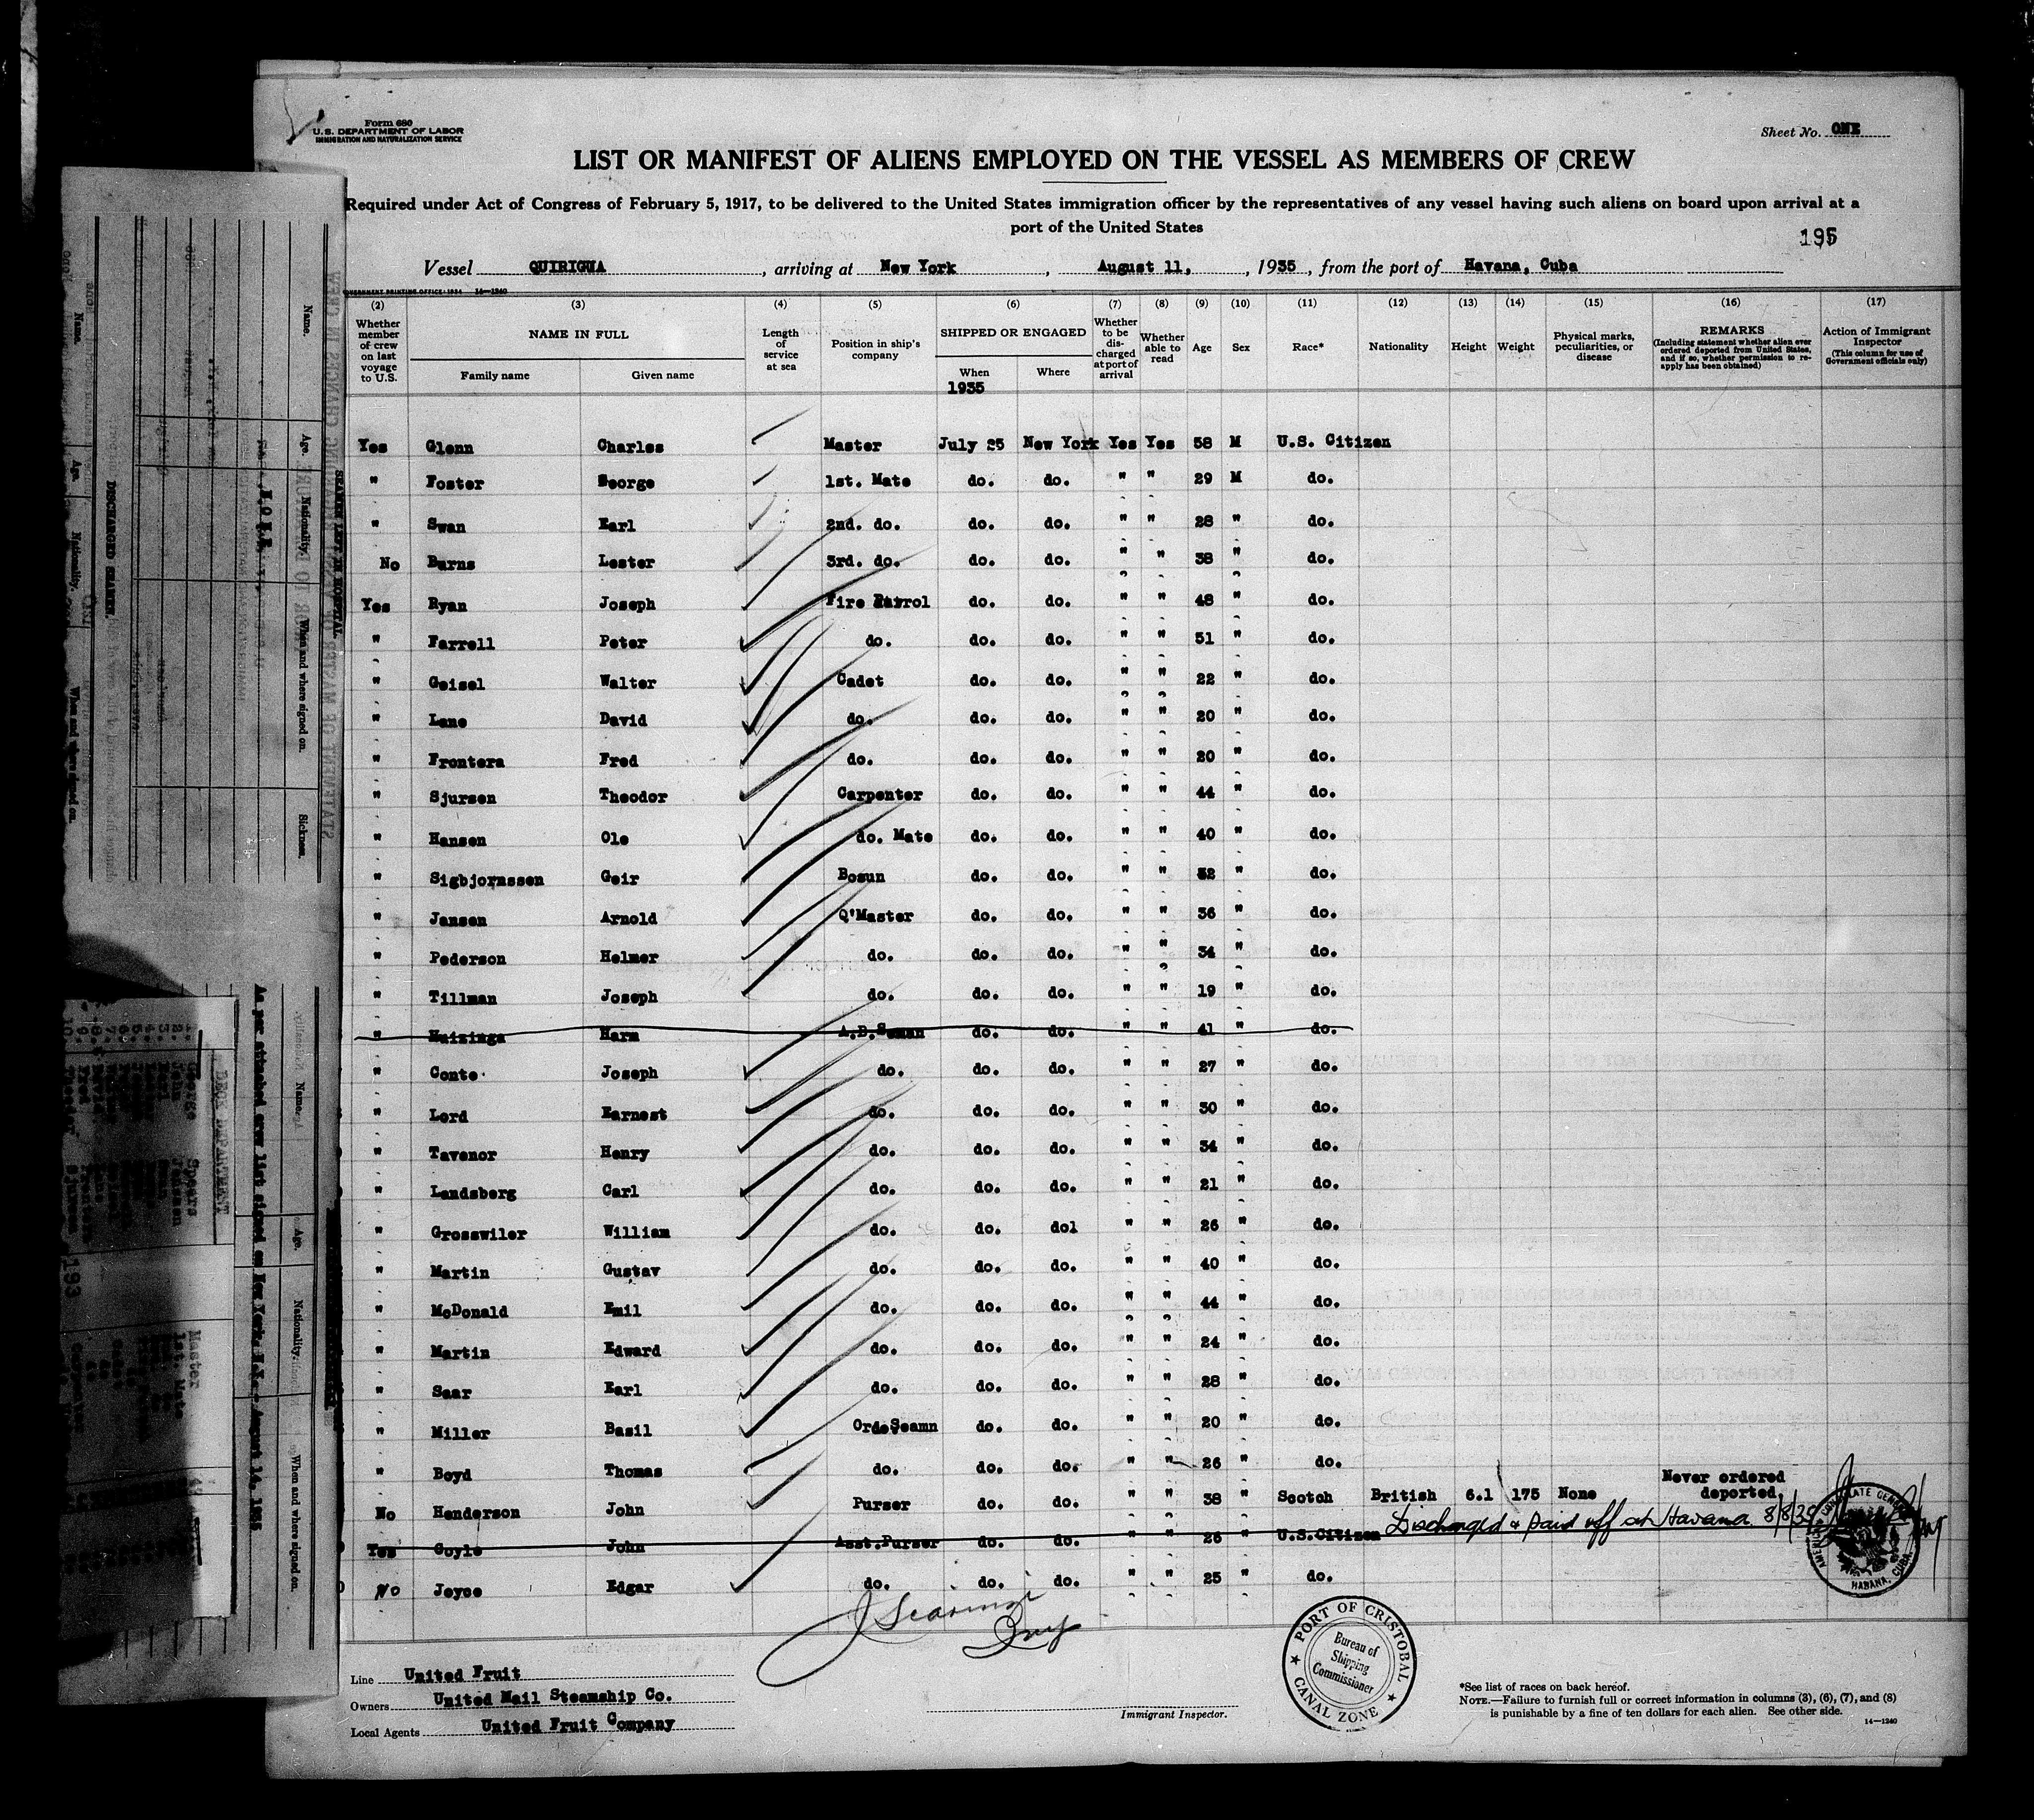 Form 680
U.S. DEPARTMENT OF LABOR
IMMIGRATION AND NATURALIZATION SERVICE
Sheet No. ONE
LIST OR MANIFEST OF ALIENS EMPLOYED ON THE VESSEL AS MEMBERS OF CREW
Required under Act of Congress of February 5, 1917, to be delivered to the United States immigration officer by the representatives of any vessel having such aliens on board upon arrival at a
port of the United States
195
Vessel QUIRIGUA, arriving at New York, August 11, 1935, from the port of Havana, Cuba
GOVERNMENT PRINTING OFFICE: 1934 14—1240
(2) (3) (4) (5) (6) (7) (8) (9) (10) (11) (12) (13) (14) (15) (16) (17)
Whether member of crew on last voyage to U.S. NAME IN FULL Family name Given name Length of service at sea Position in ship's company SHIPPED OR ENGAGED When 1935 Where Whether to be discharged at port of arrival Whether able to read Age Sex Race* Nationality Height Weight Physical marks, peculiarities, or disease REMARKS (Including statement whether alien ever ordered deported from United States, and if so, whether permission to reapply has been obtained) Action of Immigrant Inspector (This column for use of Government officials only)
Yes Glenn Charles Master July 25 New York Yes Yes 58 M U.S. Citizen
" Foster George 1st. Mate do. do. " " 29 M do.
" Swan Earl 2nd. do. do. do. " " 28 " do.
No Burns Lester 3rd. do. do. do. " " 38 " do.
Yes Ryan Joseph Fire Patrol do. do. " " 48 " do.
" Farrell Peter do. do. do. " " 51 " do.
" Geisel Walter Cadet do. do. " " 22 " do.
" Lane David do. do. do. " " 20 " do.
" Frontera Fred do. do. do. " " 20 " do.
" Sjursen Theodor Carpenter do. do. " " 44 " do.
" Hansen Ole do. Mate do. do. " " 40 " do.
" Sigbjornssen Geir Bosun do. do. " " 32 " do.
" Jansen Arnold Q'Master do. do. " " 36 " do.
" Pederson Helmer do. do. do. " " 34 " do.
" Tillman Joseph do. do. do. " " 19 " do.
" Huizinga Harm A.B. Seman do. do. " " 41 " do.
" Conte Joseph do. do. do. " " 27 " do.
" Lord Earnest do. do. do. " " 30 " do.
" Tavenor Henry do. do. do. " " 34 " do.
" Landsberg Carl do. do. do. " " 21 " do.
" Grosswiler William do. do. dol " " 26 " do.
" Martin Gustav do. do. do. " " 40 " do.
" McDonald Emil do. do. do. " " 44 " do.
" Martin Edward do. do. do. " " 24 " do.
" Saar Earl do. do. do. " " 28 " do.
" Miller Basil Ord. Seamn do. do. " " 20 " do.
" Boyd Thomas do. do. do. " " 26 " do.
No Henderson John Purser do. do. " " 38 " Scotch British 6.1 175 None Never ordered deported.
Discharged & paid off at Havana 8/8/35
Yes Coyle John Asst. Purser do. do. " " 26 " U.S.Citizen
No Joyce Edgar do. do. do. " " 25 " do.
AMERICAN CONSULATE GENERAL
HABANA, CUBA
PORT OF CRISTOBAL
Bureau of
Shipping
Commissioner
CANAL ZONE
Line United Fruit
Owners United Mail Steamship Co.
Local Agents United Fruit Company
Immigrant Inspector.
*See list of races on back hereof.
NOTE.—Failure to furnish full or correct information in columns (3), (6), (7), and (8)
is punishable by a fine of ten dollars for each alien. See other side.
14—1240
Name. Age. Nationality. When and where signed on. Sickness.
SEAMEN LEFT IN HOSPITAL
DISCHARGED SEAMEN
Name. Age. Nationality. When and where signed on.
As per attached crew list signed on New York, N.Y. - August 14, 1935
DECK DEPARTMENT
193